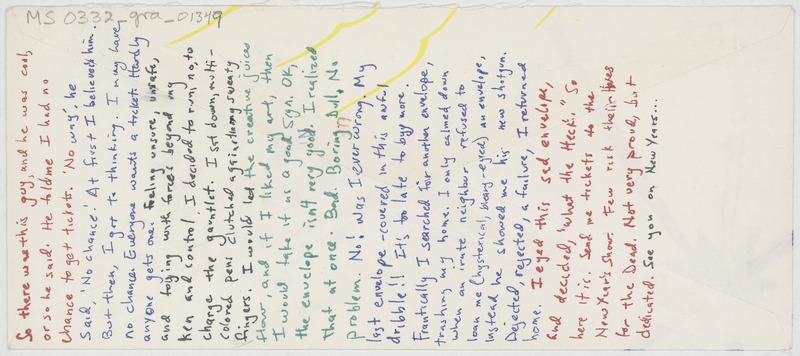 MS 0332_gra_01349
So there was this guy, and he was cool,
or so he said. He told me I had no
chance to get tickets. 'No way', he
said, 'No chance'. At first I believed him.
But then, I got to thinking. I may have
no chance. Everyone wants a ticket. Hardly
anyone gets one. Feeling unsure, unsafe,
and toying with forces beyond my
ken and control, I decided to run, no, to
charge the gauntlet. I sat down, multi-
colored pens clutched against my sweaty
fingers. I would let the creative juices
flow, and if I liked my art, then
I would take it as a good sign. OK,
the envelope isn't very good. I realized
that at once. Bad. Boring. Dull. No
problem. No! Was I ever wrong. My
last envelope - covered in this awful
dribble!! It's too late to buy more.
Frantically I searched for another envelope,
trashing my home. I only calmed down
when an irate neighbor refused to
loan me (hysterical, bleary-eyed) an envelope,
instead he showed me his new shotgun.
Dejected, rejected, a failure, I returned
home. I eyed this sad envelope,
and decided, "What the Heck." So
here it is. Send me tickets to the
New Year's Show. Few risk their lives
for the Dead. Not very proud, but
dedicated. See you on New Years...